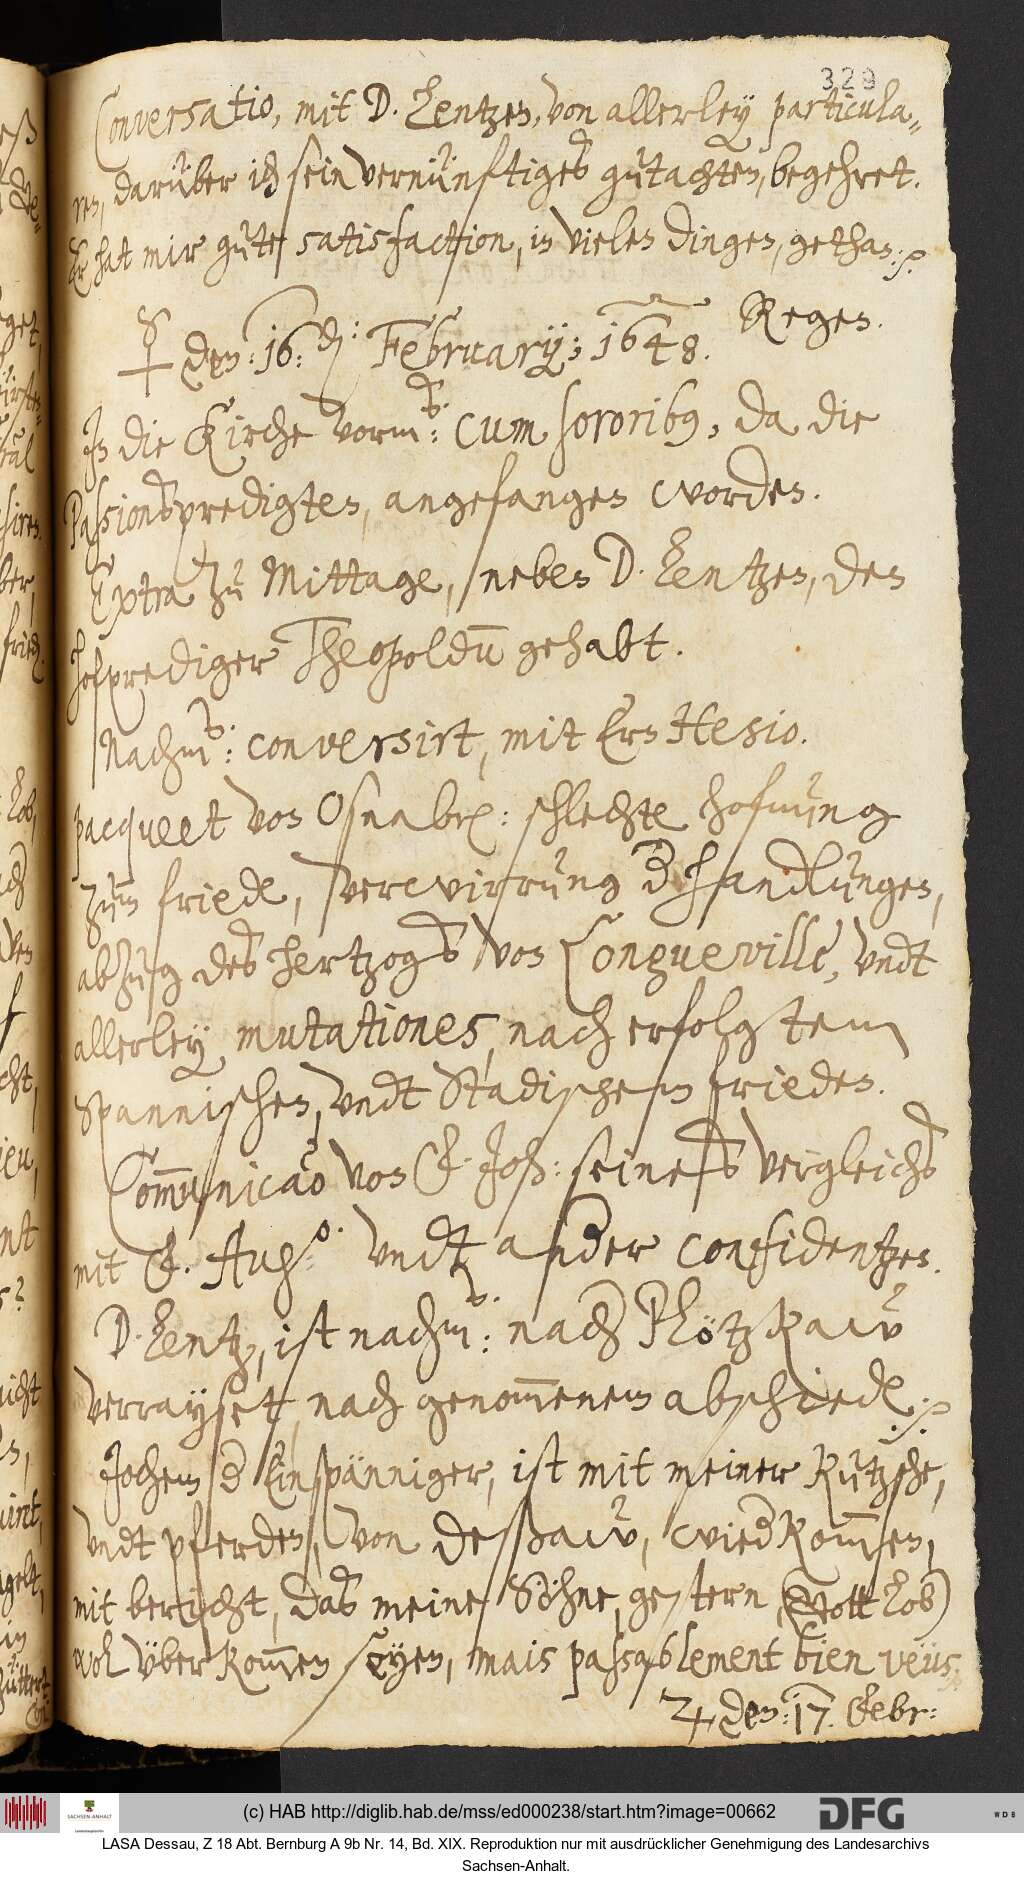 329
Conversatio, mit D. Lentzen, von allerley particula-
ren, darüber ich sein vernünftiges gutachten, begehret.
Er hat mir gute satisfaction, in vielen dingen, gethan:
☿ den: 16. Februarij; 1648.
Regen.
In die Kirche vorm: cum sororibus, da die
Passionspredigten, angefangen worden.
Extra zu Mittage, neben D. Lentzen, den
Hofprediger Theopoldū gehabt.
Nachm: conversirt, mit Ern Hesio.
pacqueet von Osnabr: schlechte hofnung
zum friede, verwirrung d handlungen,
abzug des hertzogs von Longueville, undt
allerley mutationes, nach erfolgtem
Spannischen, undt Stadischem frieden.
Com̄unicaō von F. Joh: seines vergleichs
mit F. Augo. undt ander confidentzen.
D. Lentz, ist nachm: nach Plötzkaw
verrayset, nach genom̄enem abschiede.
Jochem d Einspänniger, ist mit meiner Kutzsche,
undt pferden, von Deßaw, wied kom̄en,
mit bericht, das meine Söhne, gestern (Gott lob)
wol überkom̄en seyen, mais passablement bien veüs.
♃ den: 17. Febr:
(c) HAB http://diglib.hab.de/mss/ed000238/start.htm?image=00662
DFG
WDB
SACHSEN-ANHALT
LASA Dessau, Z 18 Abt. Bernburg A 9b Nr. 14, Bd. XIX. Reproduktion nur mit ausdrücklicher Genehmigung des Landesarchivs
Sachsen-Anhalt.